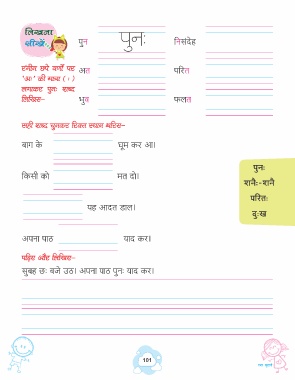 लिखना
सीखें
पुन पुनः निसंदेह
रंगीन छपे वर्णों पर
'अः' की मात्रा ( ः )
लगाकर पुनः शब्द
लिखिए–
अत परित
भुव फलत
सही शब्द चुनकर रिक्त स्थान भरिए–
बाग के घूम कर आ।
किसी को मत दो।
यह आदत डाल।
अपना पाठ याद कर।
पुनः
शनैः-शनै
परितः
दुःख
पढ़िए और लिखिए–
सुबह छः बजे उठ। अपना पाठ पुनः याद कर।
101